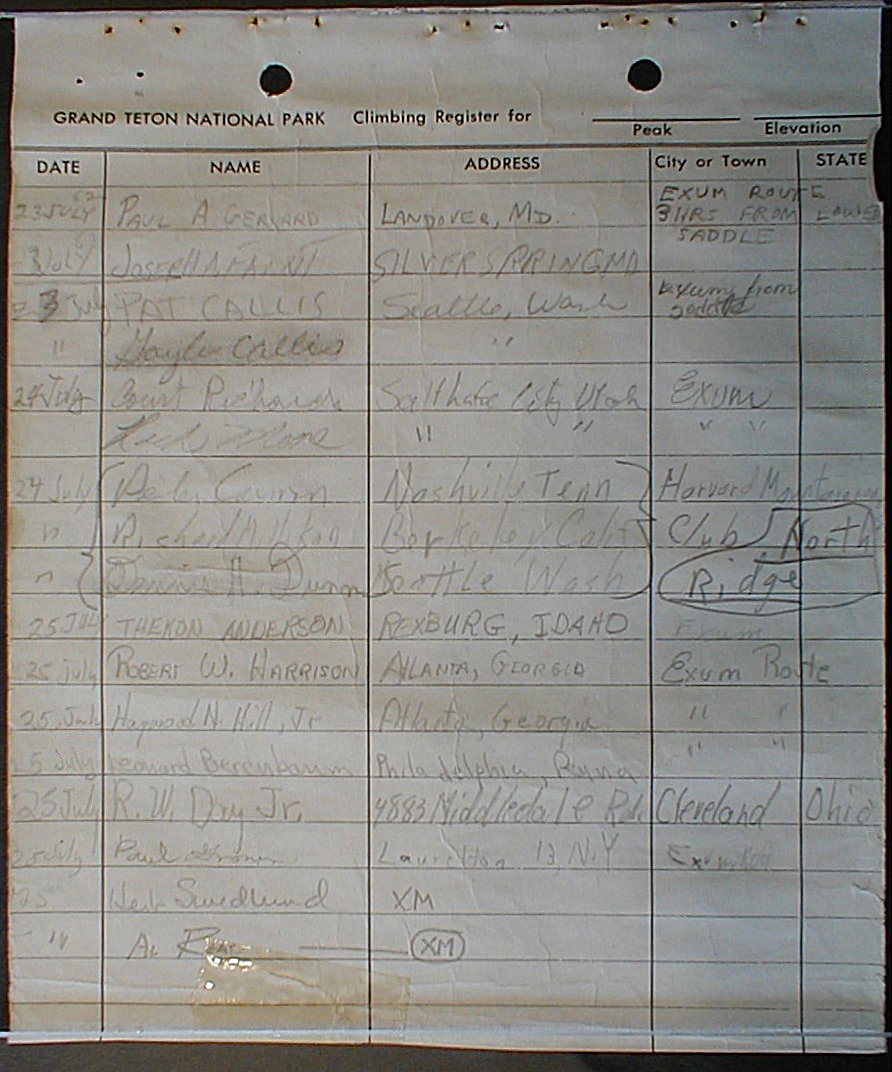 GRAND TETON NATIONAL PARK Climbing Register for
Peak Elevation
DATE NAME ADDRESS City or Town STATE
EXUM ROUTE
23 JULY 62 PAUL A. GERVARD LANDOVER, MD. 3 HRS FROM LOWER
SADDLE
23 JULY JOSEPH A. FAINT SILVER SPRING MD
23 July PAT CALLIS Seattle, Wash Exum from
saddle
" Gayle Callis "
24 July Court Richards Salt Lake City Utah Exum
" " " "
24 July Pete Nashville Tenn Harvard Mountaineering
" Richard Berkeley Calif Club North
" Dennis A. Dunn Seattle Wash Ridge
25 JULY THEKON ANDERSON REXBURG, IDAHO Exum
25 July ROBERT W. HARRISON ATLANTA, GEORGIA Exum Route
25 July Haywood N. Hill, Jr Atlanta, Georgia " "
25 July Leonard Berenbaum Philadelphia, Penna " "
25 July R. W. Day Jr. 4883 Middledale Rd. Cleveland Ohio
25 July Paul Laurelton 13, N.Y Exum
25 Herb Swedlund XM
" AL XM